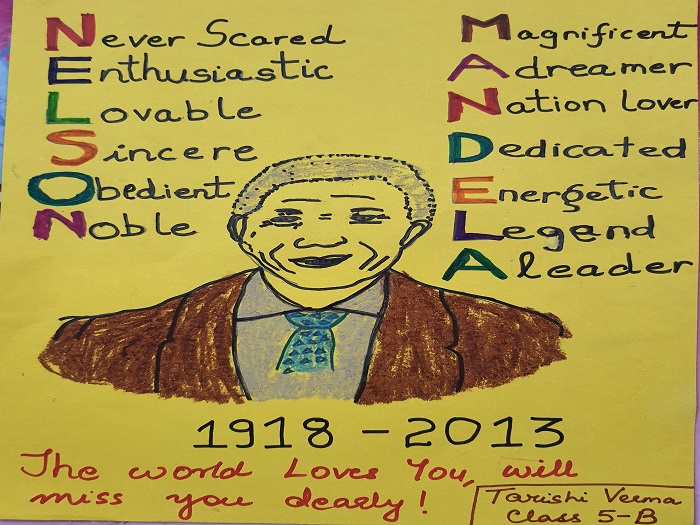 Never Scared
Enthusiastic
Lovable
Sincere
Obedient
Noble
Magnificent
A dreamer
Nation lover
Dedicated
Energetic
Legend
A leader
1918 - 2013
The world Loves You, will
miss you dearly!
Tarishi Verma
Class 5-B